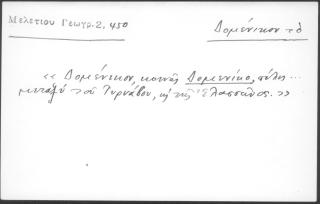 Μελετίου Γεωγρ. 2, 450
Δομένικον τὸ
« Δομένικον, κοινῶς Δομενίκο, πόλις ...
μεταξὺ τοῦ Τυρνάβου, κ̀ τῆς Ἐλασσῶνος. »